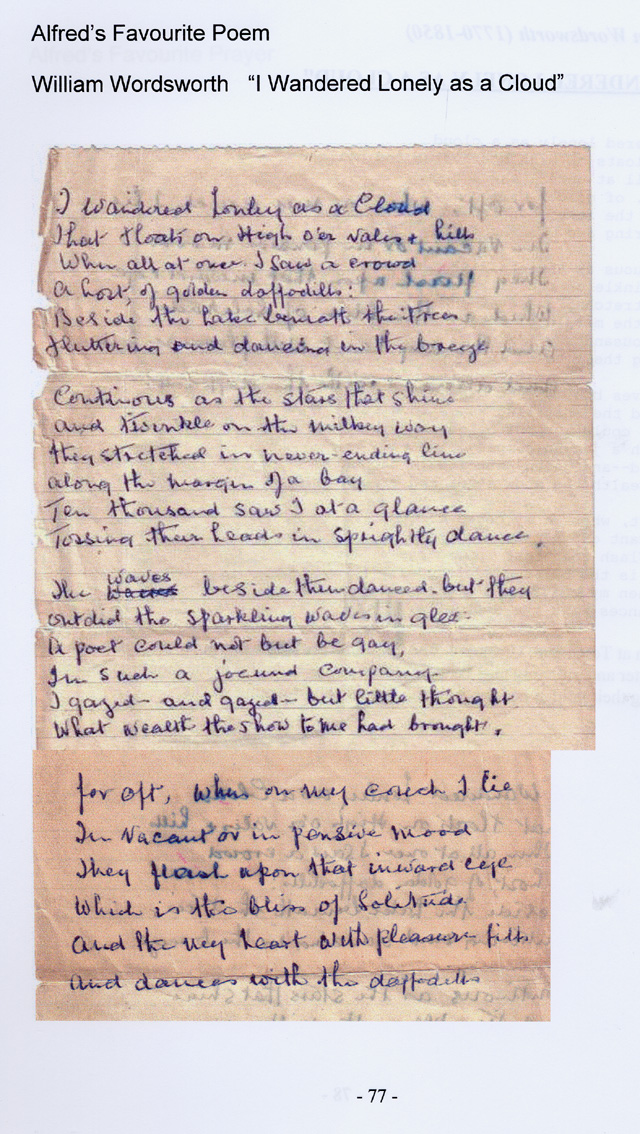 Alfred's Favourite Poem
William Wordsworth "I Wandered Lonely as a Cloud"
I Wandered Lonley as a Cloud
That floats on High o'er vales + hills
When all at once I saw a crowd
A host, of golden daffodills:
Beside the Lake beneath the Trees
fluttering and dancing in the breeze
Continous as the stars that shine
and twinkle on the milkey way
they stretched in never-ending line
along the margin of a bay
Ten thousand saw I at a glance
Tossing their heads in sprightly dance.
The waves beside them danced. but they
outdid the sparkling waves in glee
A poet could not but be gay,
In such a jocund company
I gazed - and gazed - but little thought
What wealth the show to me had brought.
for oft, when on my couch I lie
In vacant or in pensive mood
They flash upon that inward eye
Which is the bliss of Solitude
And the my heart with pleasure fills
And dances with the daffodills
- 77 -